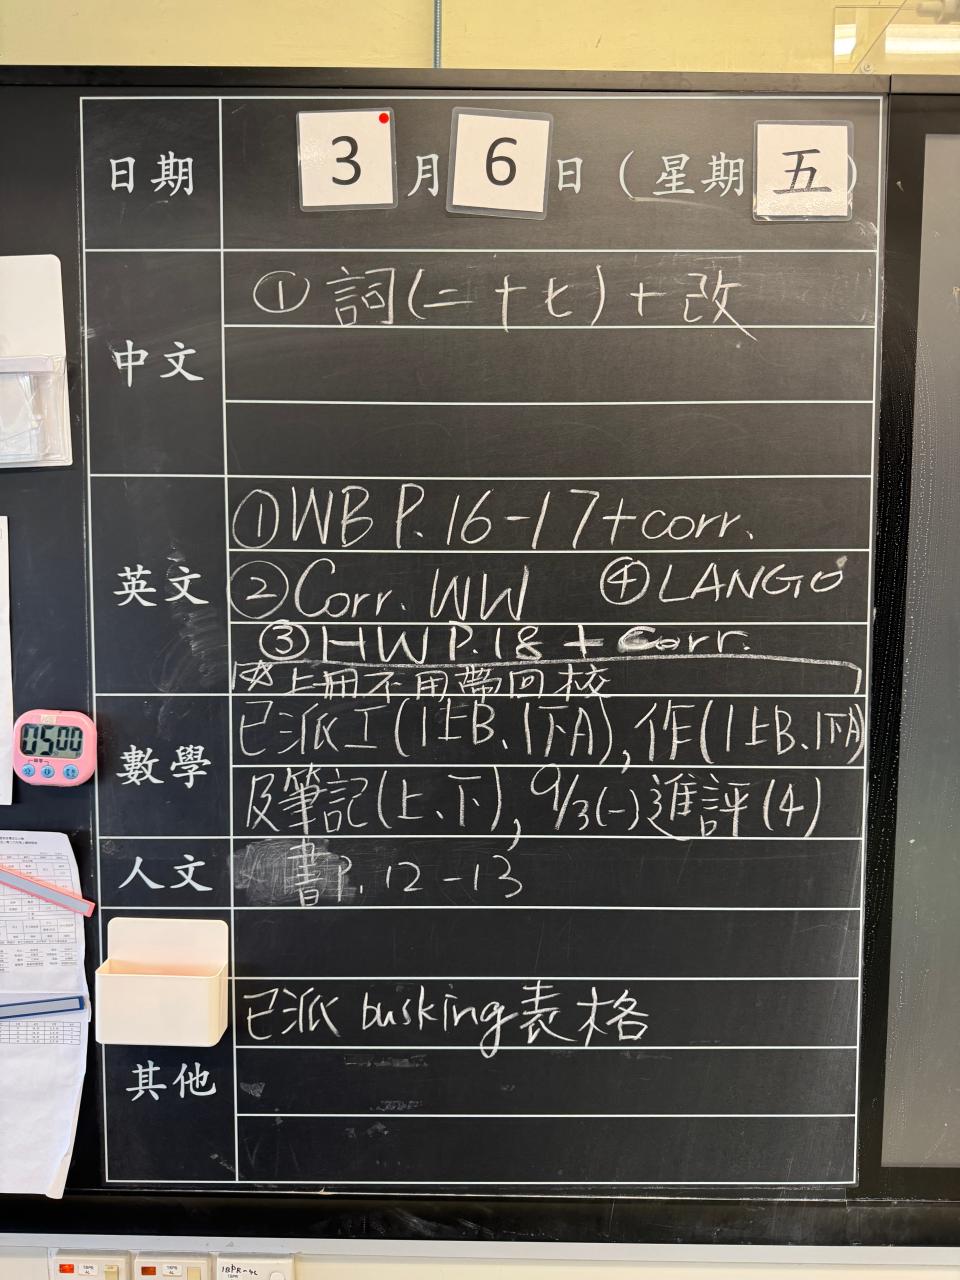 日期 3月6日(星期五)
中文 ①詞(二十七)+改
英文 ①WB P.16-17+corr.
②Corr. WW ④LANGO
③HW P.18 + Corr.
上冊不用帶回校
數學 已派工(1上B、1下A),作(1上B、1下A)
及筆記(上、下),9/3(一)進評(4)
人文 書P.12-13
已派busking表格
其他
1500